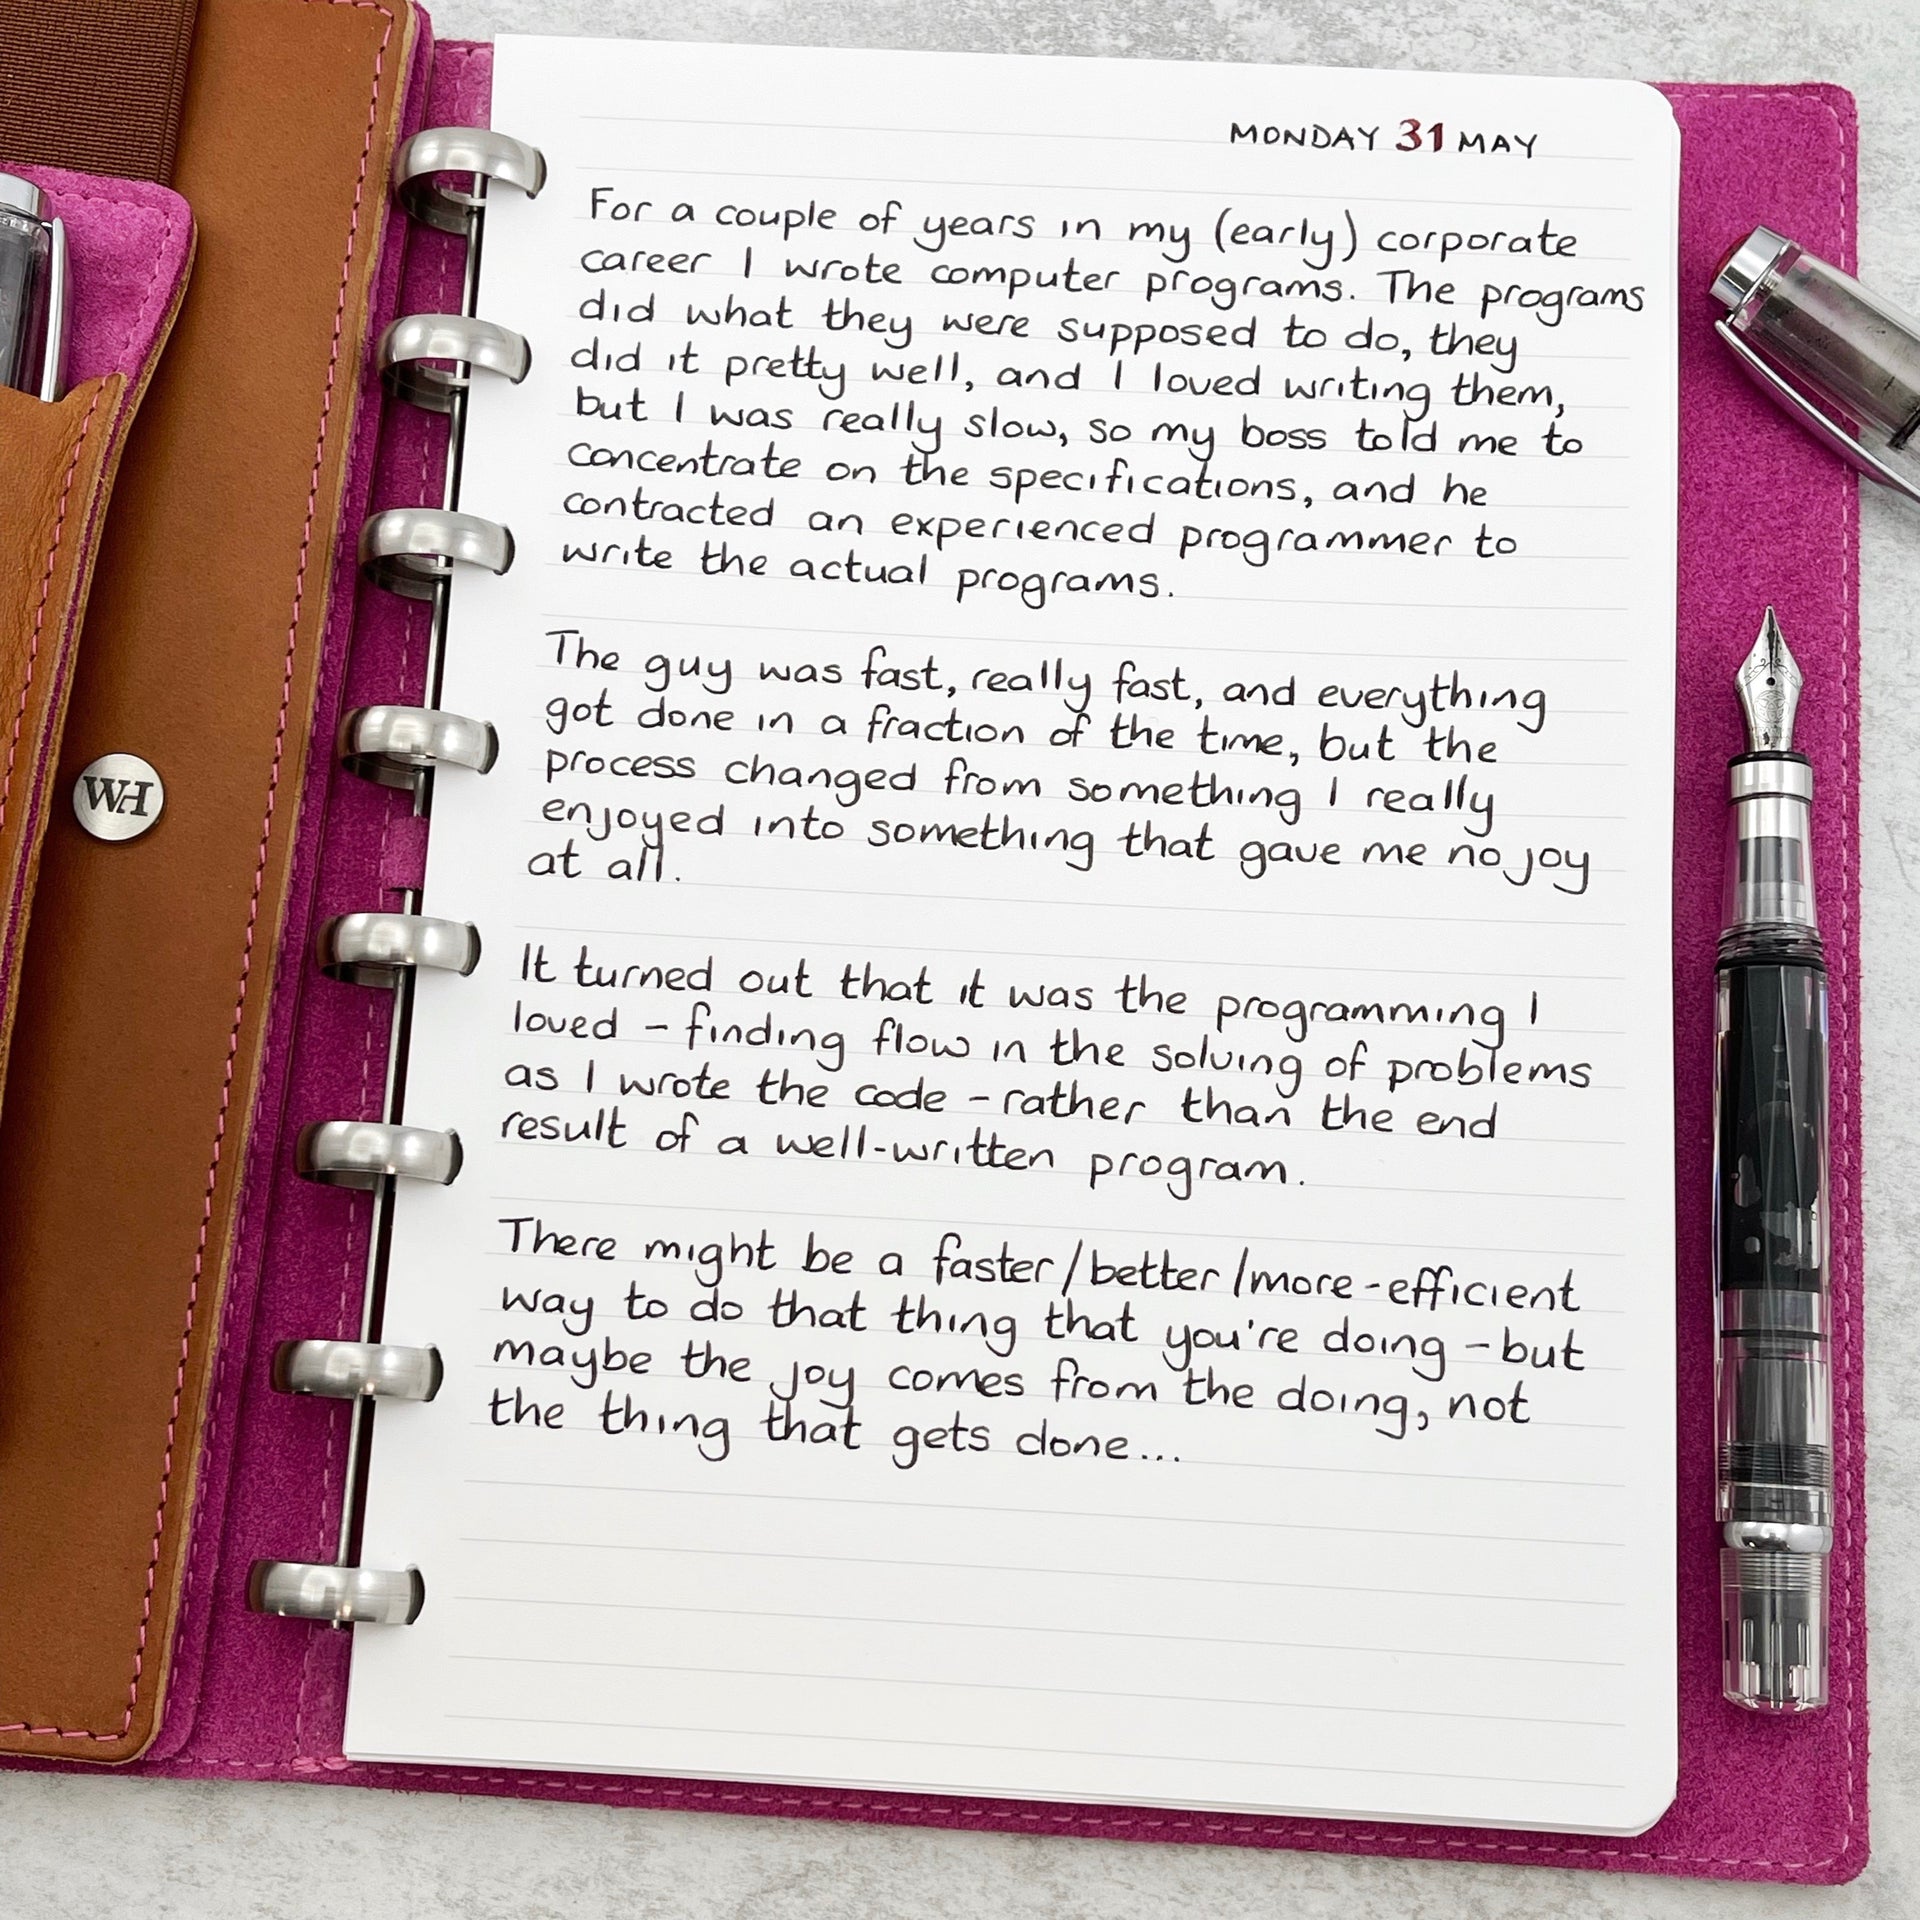 MONDAY 31 MAY
For a couple of years in my (early) corporate
career I wrote computer programs. The programs
did what they were supposed to do, they
did it pretty well, and I loved writing them,
but I was really slow, so my boss told me to
concentrate on the specifications, and he
contracted an experienced programmer to
write the actual programs.
The guy was fast, really fast, and everything
got done in a fraction of the time, but the
process changed from something I really
enjoyed into something that gave me no joy
at all.
It turned out that it was the programming I
loved - finding flow in the solving of problems
as I wrote the code - rather than the end
result of a well-written program.
There might be a faster/better/more-efficient
way to do that thing that you're doing - but
maybe the joy comes from the doing, not
the thing that gets done...
WH